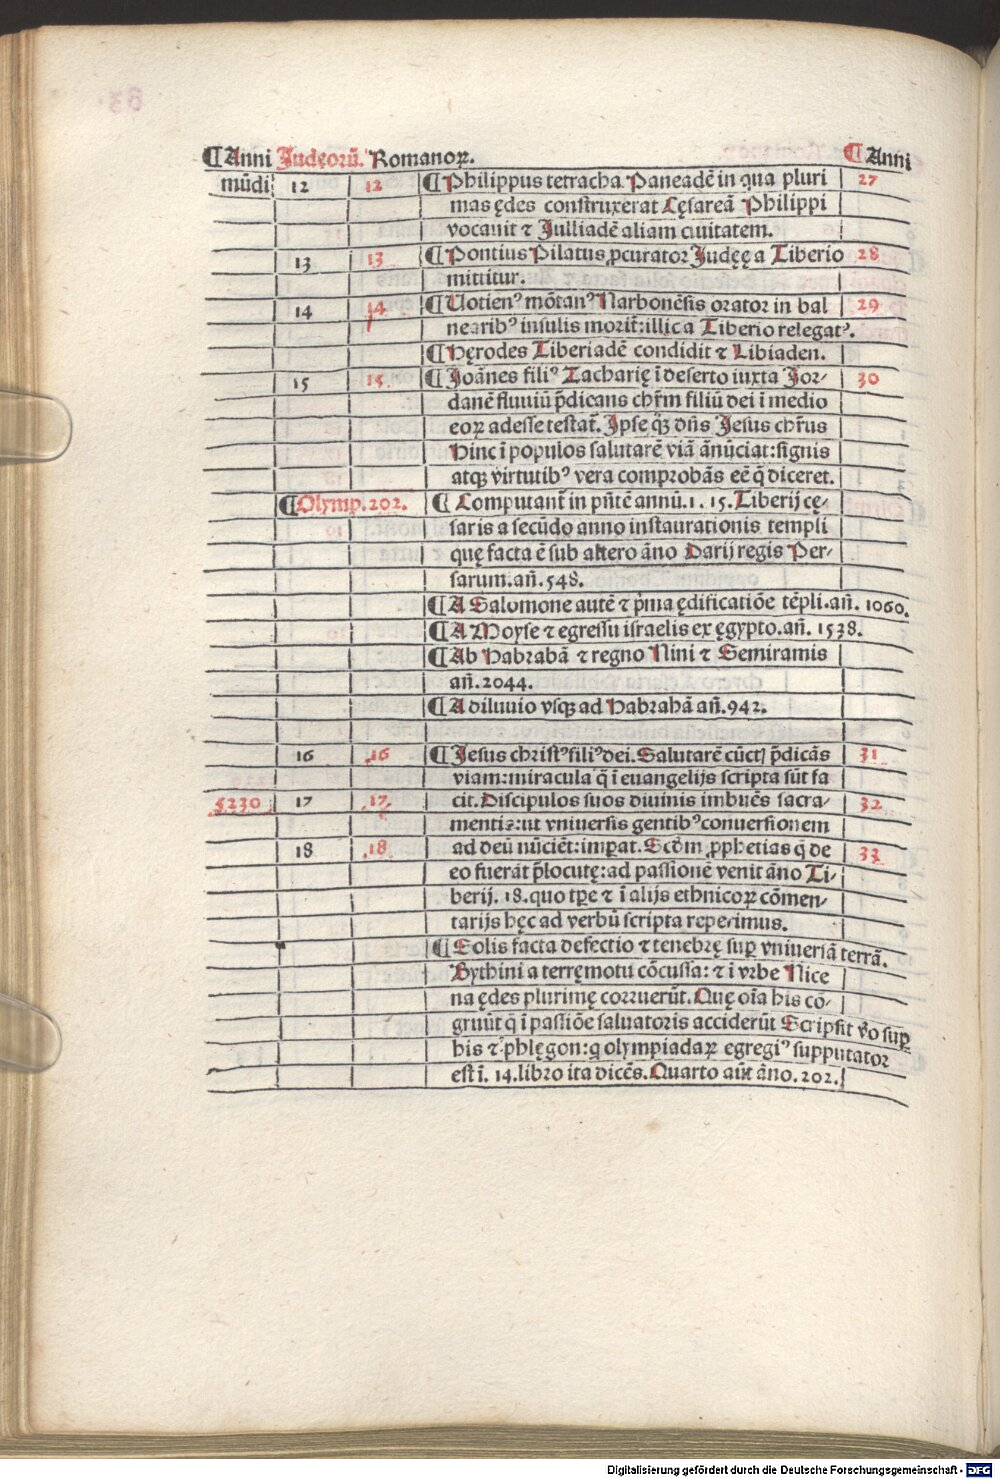 ¶Anni Judęorū. Romanoꝝ. ¶ Anni
mūdi 12 12 ¶Philippus tetracha Paneadē in qua pluri 27
mas ędes construxerat Cęsareā Philippi
vocauit ⁊ Julliadē aliam ciuitatem.
13 13 ¶Pontius Pilatus ꝓcurator Judęę a Tiberio 28
mittitur.
14 14 ¶Uotienꝰ mōtanꝰ Narbonēsis orator in bal 29
nearibꝰ insulis morit̄:illic a Tiberio relegatꝰ.
¶Hęrodes Tiberiadē condidit ⁊ Libiaden.
15 15 ¶Joānes filiꝰ Zacharię ī deserto iuxta Jor-
30
danē fluuiū p̄dicans chr̄m filiū dei ī medio
eoꝝ adesse testat̄. Ipse q̄ꝫ dn̄s Jesus chr̄us
Hinc ī populos salutarē viā ānūciat:signis
atqꝫ virtutibꝰ vera comprobās eē q̄ diceret.
¶Olymp.202. ¶ Computant̄ in pn̄tē annū.1.15.Tiberij cę-
saris a secūdo anno instaurationis templi
quę facta ē sub altero āno Darij regis Per-
sarum.an̄.548.
¶A Salomone autē ⁊ p̄ma ędificatiōe tēpli.an̄.1060.
¶A Moyse ⁊ egressu israelis ex ęgypto.an̄.1538.
¶Ab Habrahā ⁊ regno Nini ⁊ Semiramis
an̄.2044.
¶A diluuio vsqꝫ ad Habrahā an̄.942.
16 16 ¶Jesus christꝰ filiꝰ dei. Salutarē cūct p̄dicās 31
viam:miracula q̄ ī euangelijs scripta sūt fa
5230 17 17 cit.Discipulos suos diuinis imbuēs sacra- 32
mentis:ut vniuersis gentibꝰ conuersionem
18 18 ad deū nūciēt:imꝑat.Scd̄m ꝓphetias q̄ de 33
eo fuerāt p̄locutę:ad passionē venit āno Ti-
berij.18.quo tꝑe ⁊ ī alijs ethnicoꝝ cōmen-
tarijs hęc ad verbū scripta reperimus.
¶Solis facta defectio ⁊ tenebrę suꝑ vniuersā terrā.
Bythini a terręmotu cōcussa: ⁊ ī vrbe Nice
na ędes plurimę corruerūt. Quę oīa his cō-
gruūt q̄ ī passiōe saluatoris acciderūt Scripsit v̄o suꝑ
his ⁊ phlęgon:q olympiadaꝝ egregiꝰ supputator
est ī.14.libro ita dicēs.Quarto aūt āno.202.
Digitalisierung gefördert durch die Deutsche Forschungsgemeinschaft - DFG